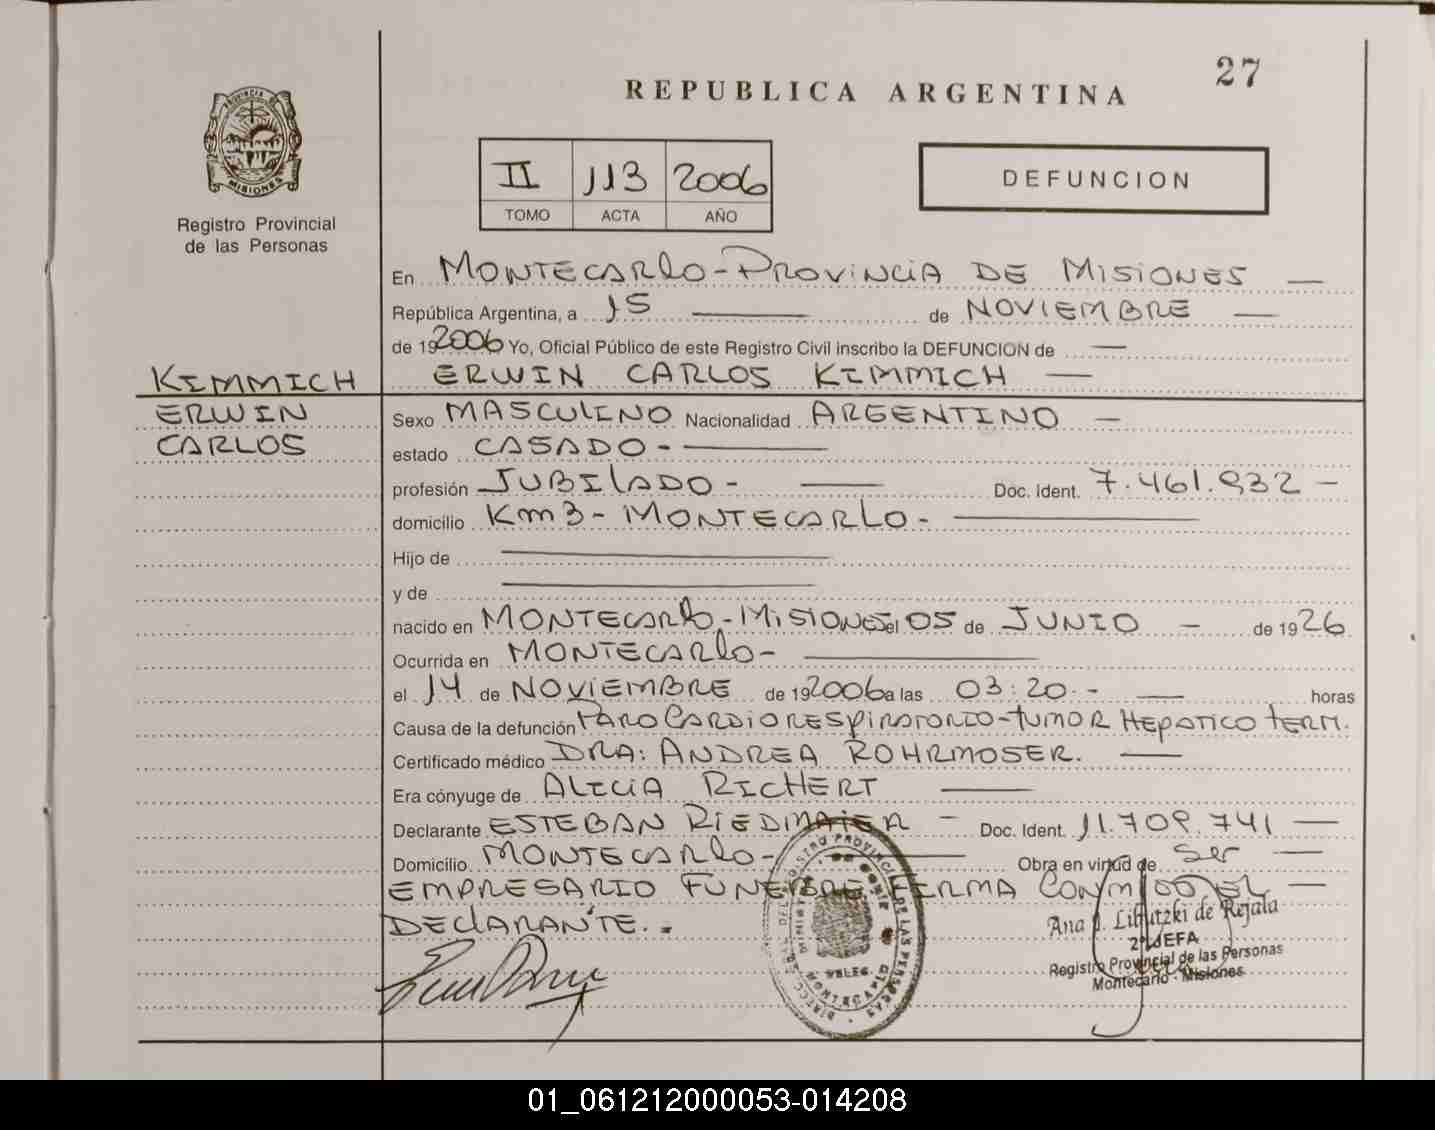 27
REPUBLICA ARGENTINA
PROVINCIA DE
MISIONES
Registro Provincial
de las Personas
II 113 2006
TOMO ACTA AÑO
DEFUNCION
En MONTECARLO - PROVINCIA DE MISIONES —
República Argentina, a 15 — de NOVIEMBRE —
de 19 2006 Yo, Oficial Público de este Registro Civil inscribo la DEFUNCION de —
KIMMICH ERWIN CARLOS KIMMICH —
ERWIN Sexo MASCULINO Nacionalidad ARGENTINO —
CARLOS estado CASADO - —
profesión JUBILADO - — Doc. Ident. 7.461.932 —
domicilio Km 3 - MONTECARLO - —
Hijo de —
y de —
nacido en MONTECARLO - MISIONES el 05 de JUNIO — de 19 26
Ocurrida en MONTECARLO - —
el 14 de NOVIEMBRE de 19 2006 a las 03:20 - — horas
Causa de la defunción PARO CARDIORESPIRATORIO - TUMOR HEPATICO TERM.
Certificado médico DRA: ANDREA ROHRMOSER. —
Era cónyuge de ALICIA RICHERT —
Declarante ESTEBAN RIEDMAIER — Doc. Ident. 11.709.741 —
Domicilio MONTECARLO - — Obra en virtud de Ser —
EMPRESARIO FUNEBRE FIRMA CONMIGO EL —
DECLARANTE.
Ana Libutzki de Rejala
2º JEFA
Registro Provincial de las Personas
Montecarlo - Misiones
01_061212000053-014208